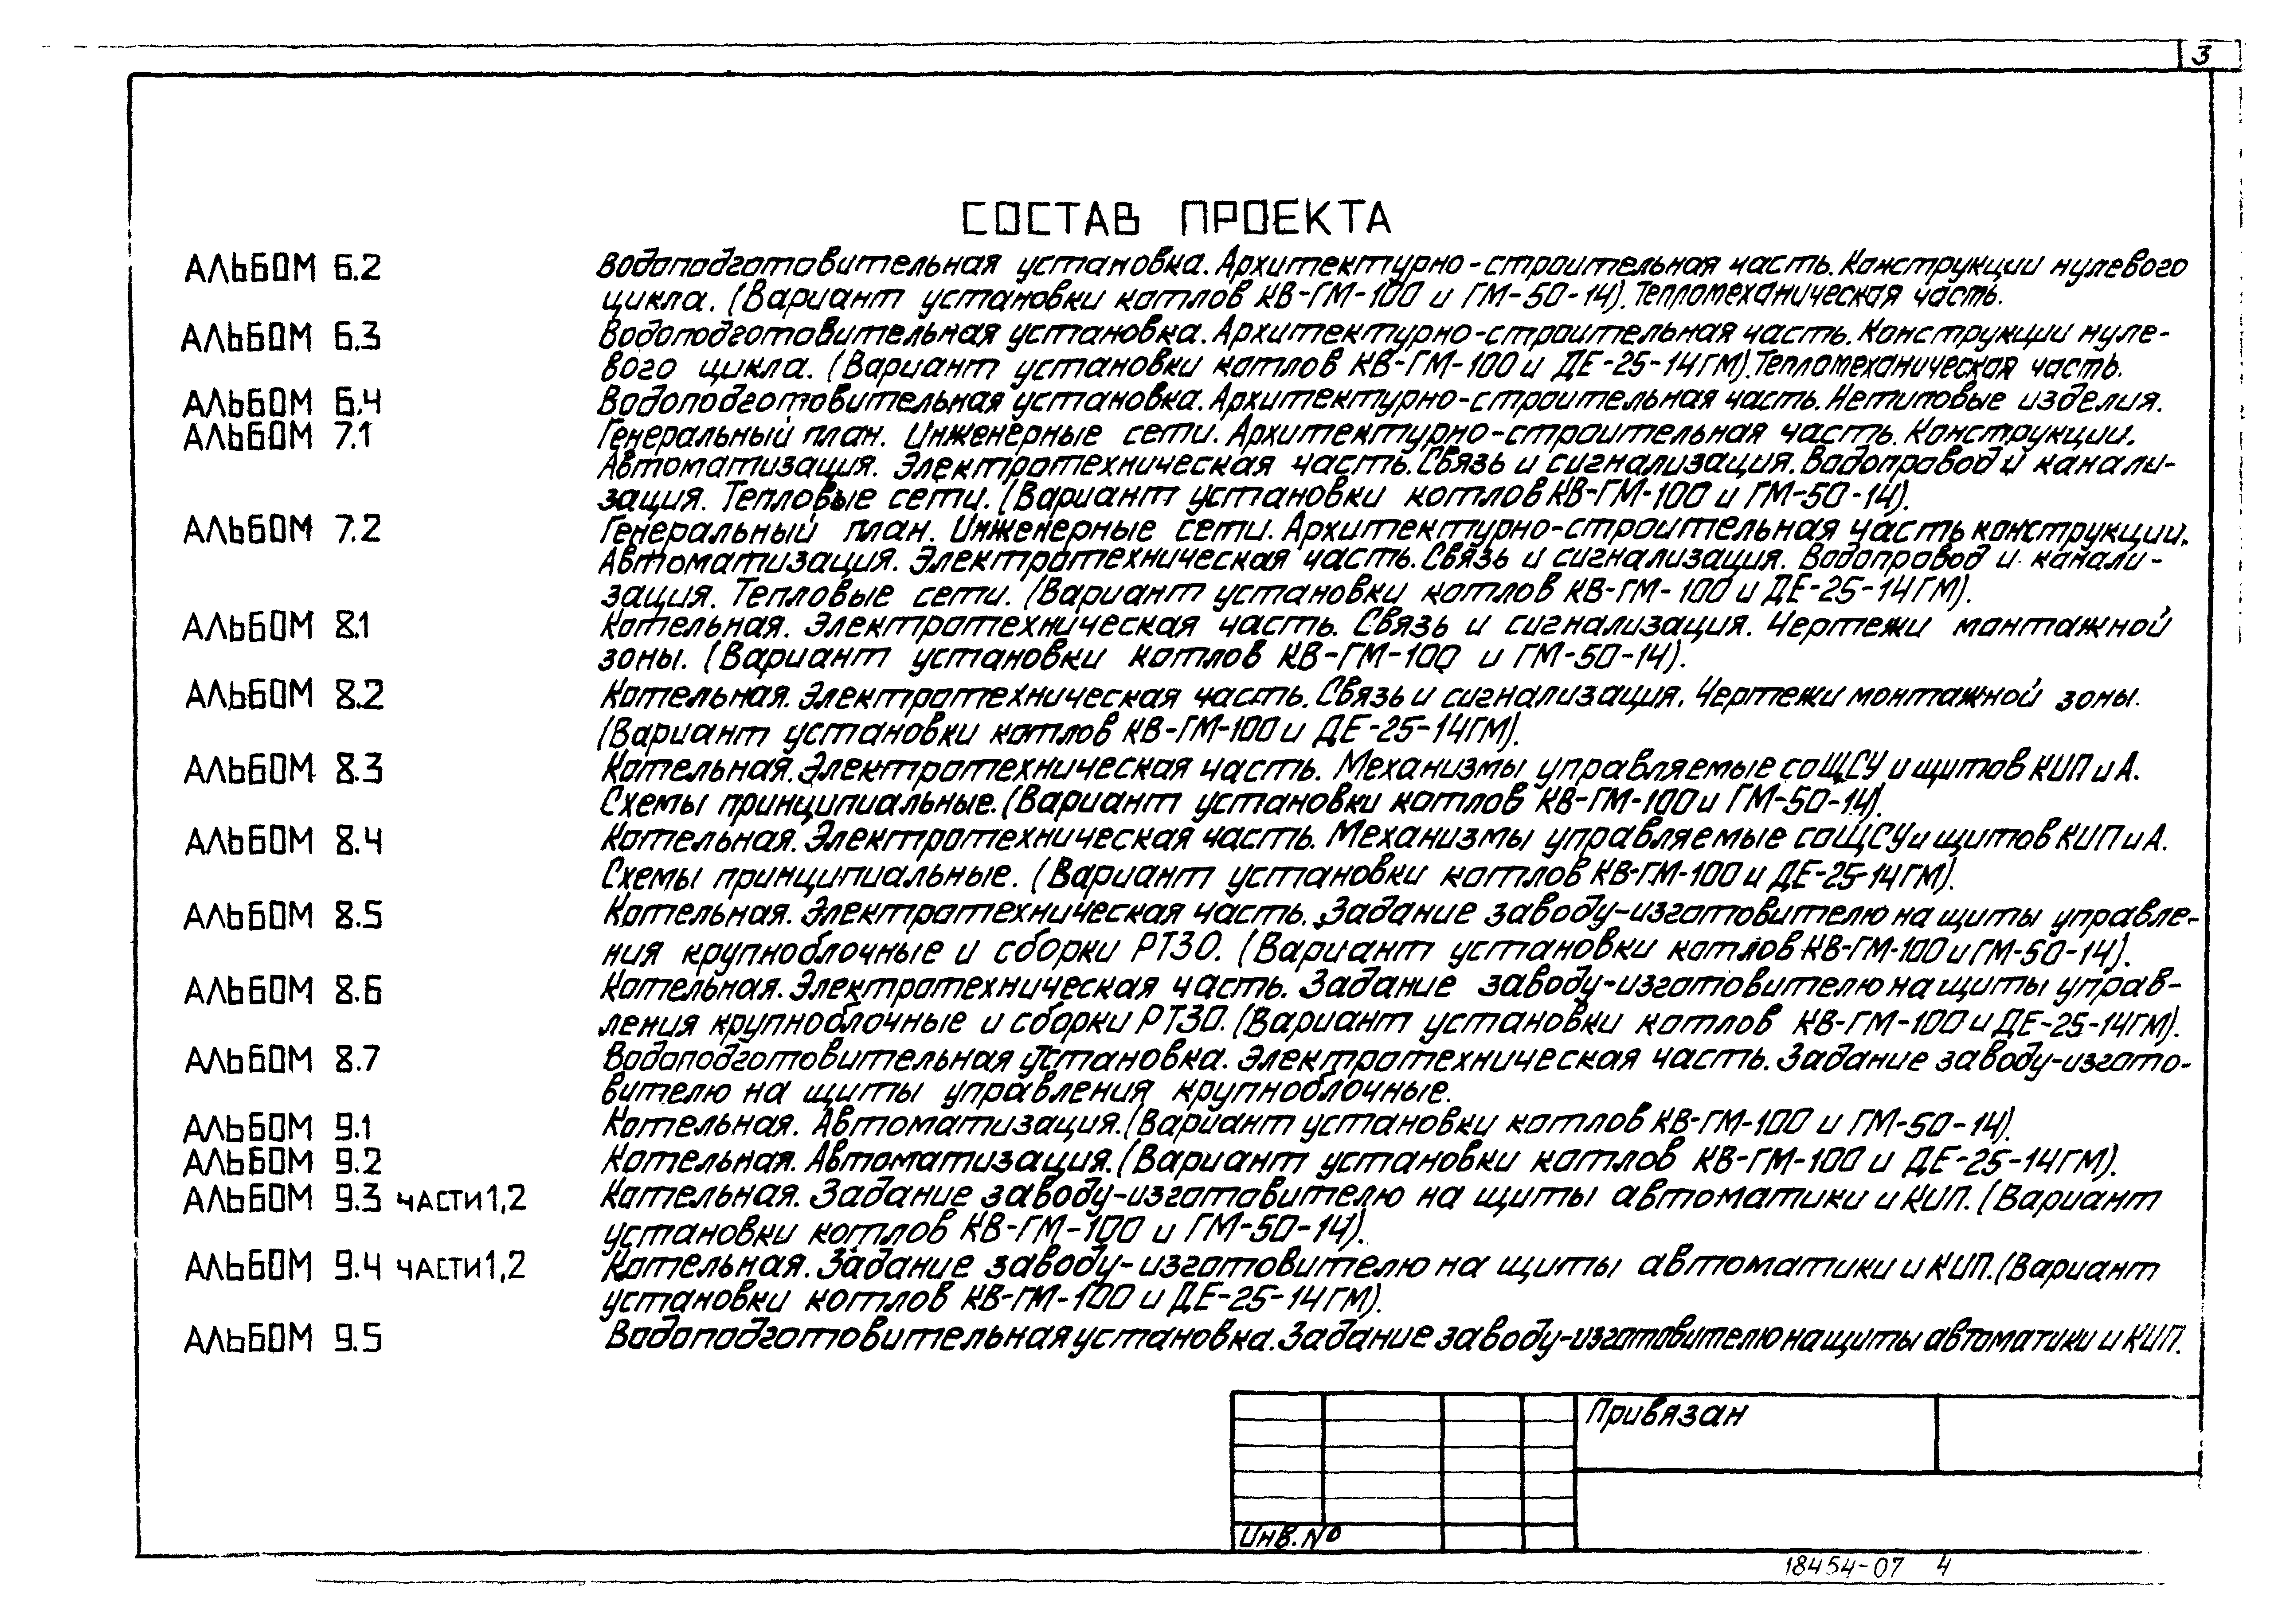 3
СОСТАВ ПРОЕКТА
АЛЬБОМ 6.2 Водоподготовительная установка. Архитектурно-строительная часть. Конструкции нулевого
цикла. (Вариант установки котлов КВ-ГМ-100 и ГМ-50-14). Тепломеханическая часть.
АЛЬБОМ 6.3 Водоподготовительная установка. Архитектурно-строительная часть. Конструкции нуле-
вого цикла. (Вариант установки котлов КВ-ГМ-100 и ДЕ-25-14ГМ). Тепломеханическая часть.
АЛЬБОМ 6.4 Водоподготовительная установка. Архитектурно-строительная часть. Нетиповые изделия.
АЛЬБОМ 7.1 Генеральный план. Инженерные сети. Архитектурно-строительная часть. Конструкции.
Автоматизация. Электротехническая часть. Связь и сигнализация. Водопровод и канали-
зация. Тепловые сети. (Вариант установки котлов КВ-ГМ-100 и ГМ-50-14).
АЛЬБОМ 7.2 Генеральный план. Инженерные сети. Архитектурно-строительная часть конструкции.
Автоматизация. Электротехническая часть. Связь и сигнализация. Водопровод и канали-
зация. Тепловые сети. (Вариант установки котлов КВ-ГМ-100 и ДЕ-25-14ГМ).
АЛЬБОМ 8.1 Котельная. Электротехническая часть. Связь и сигнализация. Чертежи монтажной
зоны. (Вариант установки котлов КВ-ГМ-100 и ГМ-50-14).
АЛЬБОМ 8.2 Котельная. Электротехническая часть. Связь и сигнализация. Чертежи монтажной зоны.
(Вариант установки котлов КВ-ГМ-100 и ДЕ-25-14ГМ).
АЛЬБОМ 8.3 Котельная. Электротехническая часть. Механизмы управляемые со ЩСУ и щитов КИП и А.
Схемы принципиальные. (Вариант установки котлов КВ-ГМ-100 и ГМ-50-14).
АЛЬБОМ 8.4 Котельная. Электротехническая часть. Механизмы управляемые со ЩСУ и щитов КИП и А.
Схемы принципиальные. (Вариант установки котлов КВ-ГМ-100 и ДЕ-25-14ГМ).
АЛЬБОМ 8.5 Котельная. Электротехническая часть. Задание заводу-изготовителю на щиты управле-
ния крупноблочные и сборки РТЗО. (Вариант установки котлов КВ-ГМ-100 и ГМ-50-14).
АЛЬБОМ 8.6 Котельная. Электротехническая часть. Задание заводу-изготовителю на щиты управ-
ления крупноблочные и сборки РТЗО. (Вариант установки котлов КВ-ГМ-100 и ДЕ-25-14ГМ).
АЛЬБОМ 8.7 Водоподготовительная установка. Электротехническая часть. Задание заводу-изгото-
вителю на щиты управления крупноблочные.
АЛЬБОМ 9.1 Котельная. Автоматизация. (Вариант установки котлов КВ-ГМ-100 и ГМ-50-14).
АЛЬБОМ 9.2 Котельная. Автоматизация. (Вариант установки котлов КВ-ГМ-100 и ДЕ-25-14ГМ).
АЛЬБОМ 9.3 ЧАСТИ 1,2 Котельная. Задание заводу-изготовителю на щиты автоматики и КИП. (Вариант
установки котлов КВ-ГМ-100 и ГМ-50-14).
АЛЬБОМ 9.4 ЧАСТИ 1,2 Котельная. Задание заводу-изготовителю на щиты автоматики и КИП. (Вариант
установки котлов КВ-ГМ-100 и ДЕ-25-14ГМ).
АЛЬБОМ 9.5 Водоподготовительная установка. Задание заводу-изготовителю на щиты автоматики и КИП.
Привязан
Инв. №
18454-07 4